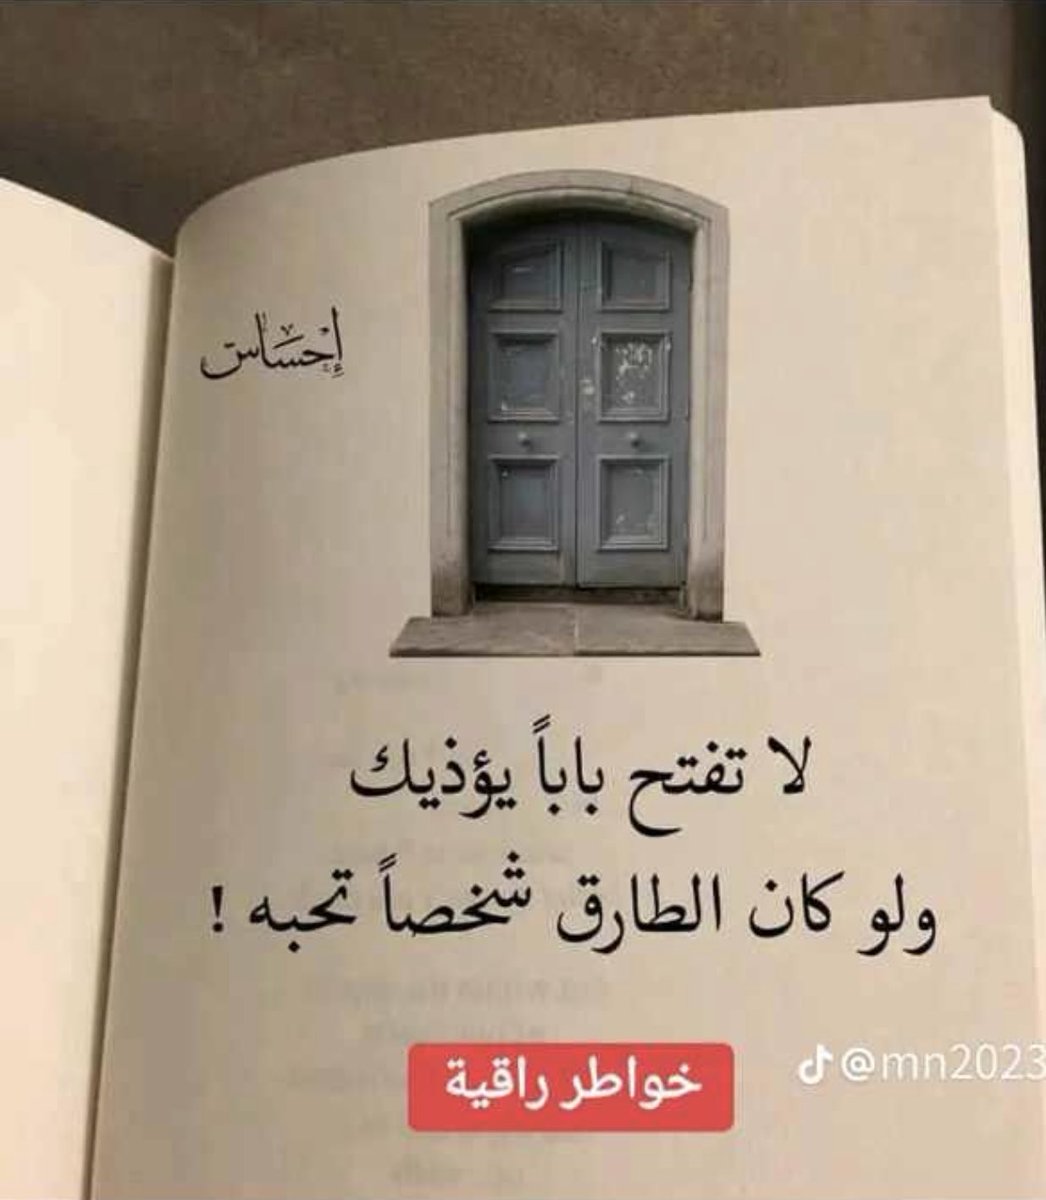 إِحْسَاس
لا تفتح باباً يؤذيك
ولو كان الطارق شخصاً تحبه !
خواطر راقية
@mn2023